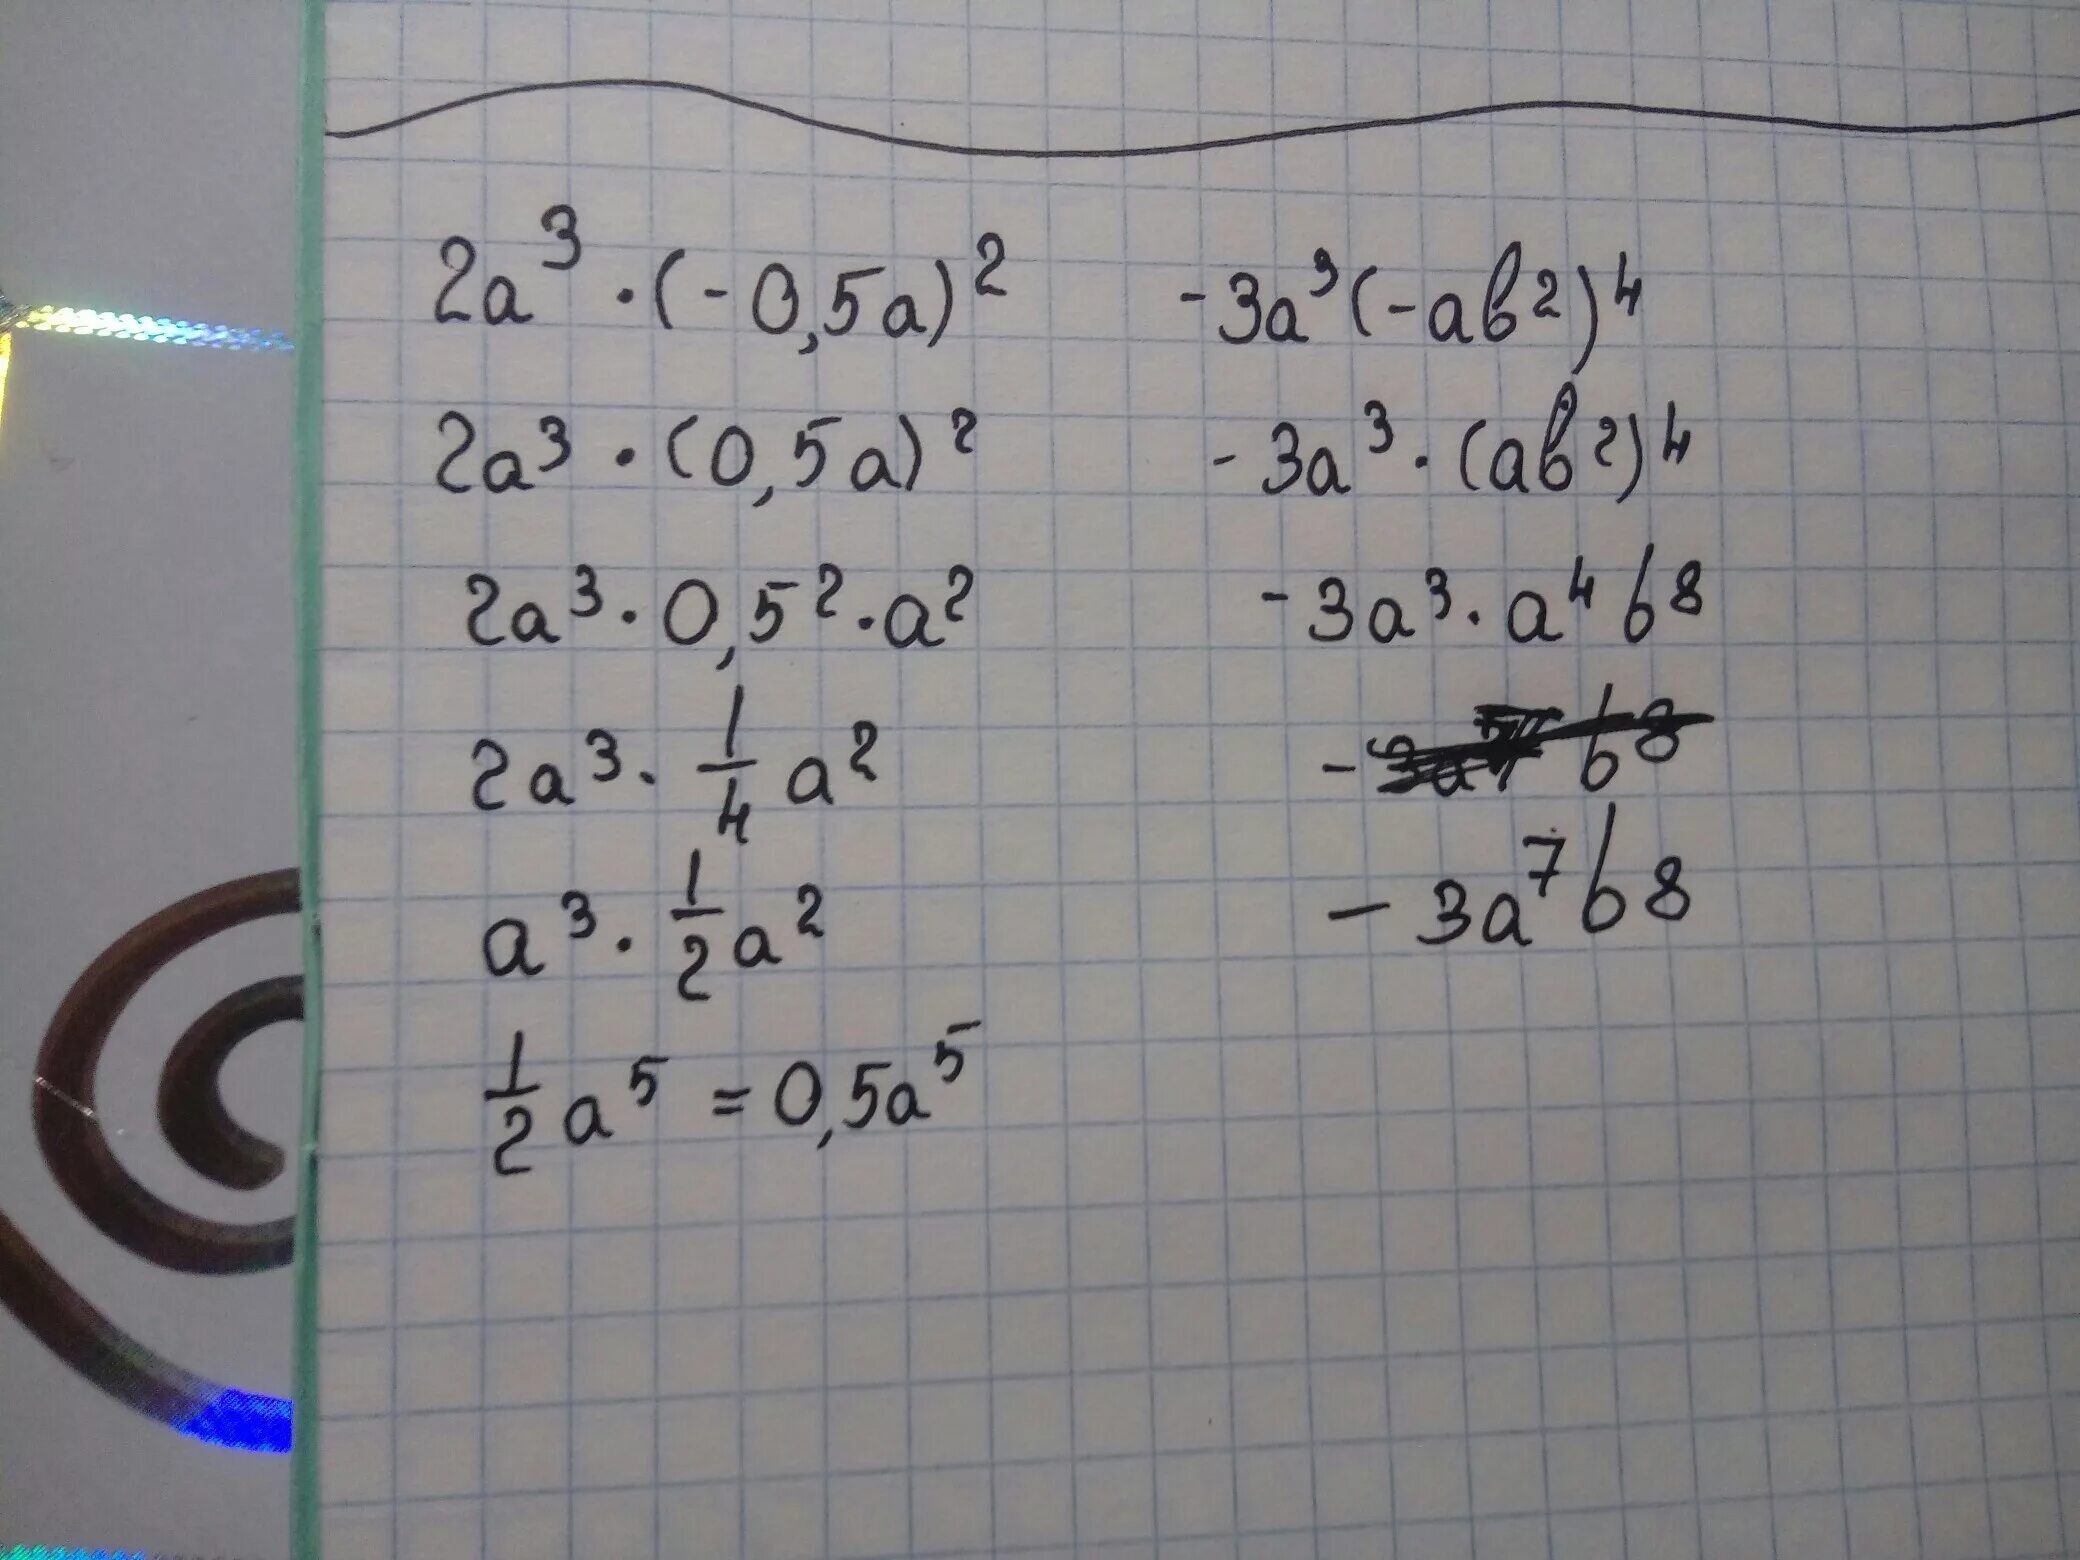 2a³ · (-0,5a)²
2a³ · (0,5a)²
2a³ · 0,5² · a²
2a³ · 1/4 a²
a³ · 1/2 a²
1/2 a⁵ = 0,5a⁵
-3a³(-ab²)⁴
-3a³ · (ab²)⁴
-3a³ · a⁴b⁸
- b⁸
-3a⁷b⁸